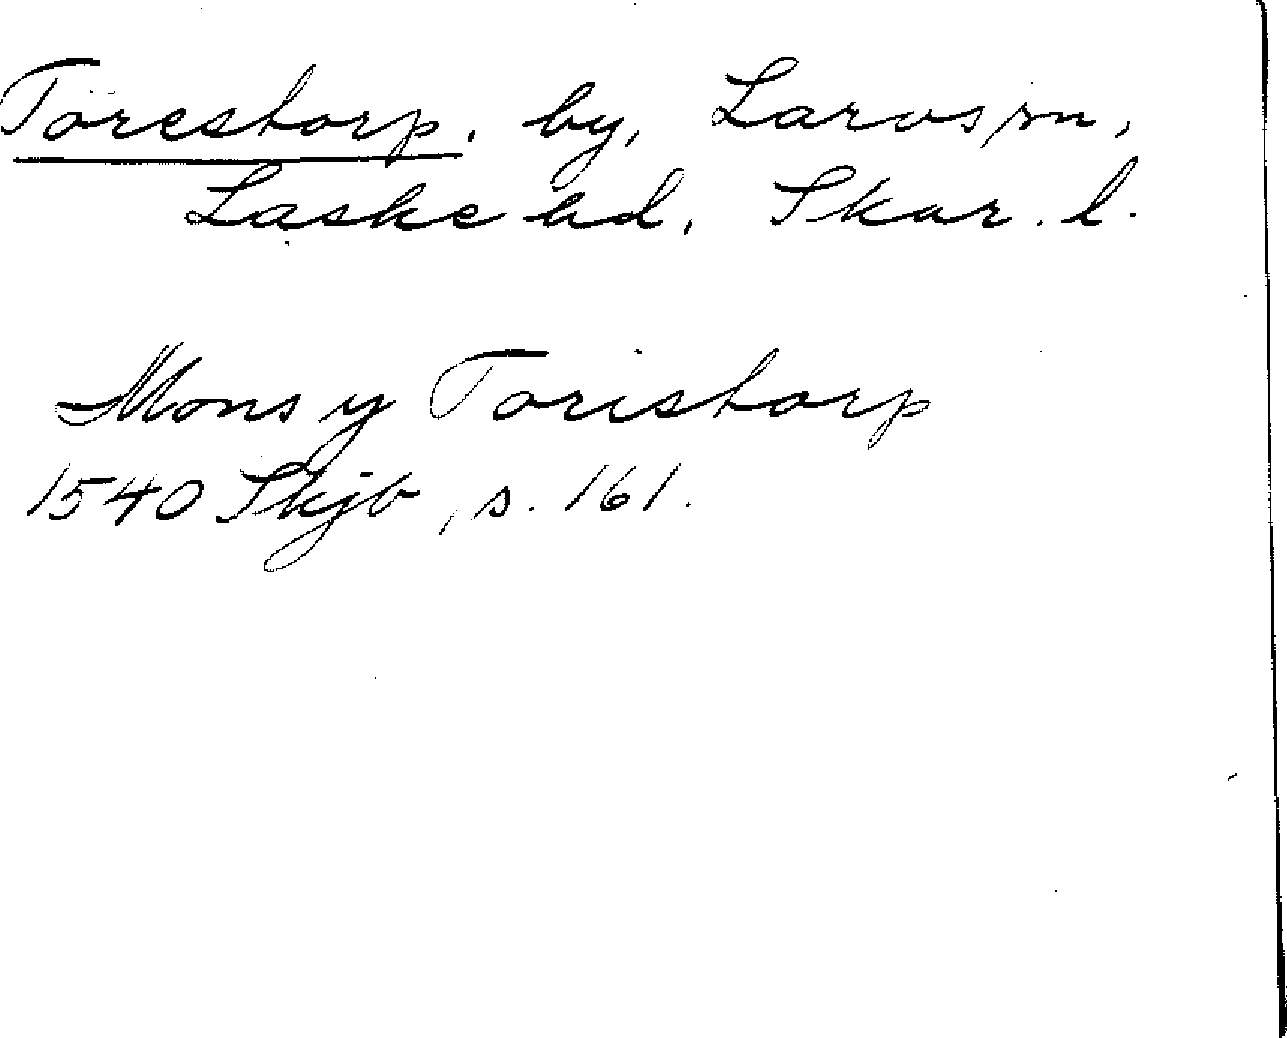 Törestorp, by, Larvs sn,
Laske hd, Skar. l.
Mons y Toristorp
1540 Skjb, s. 161.